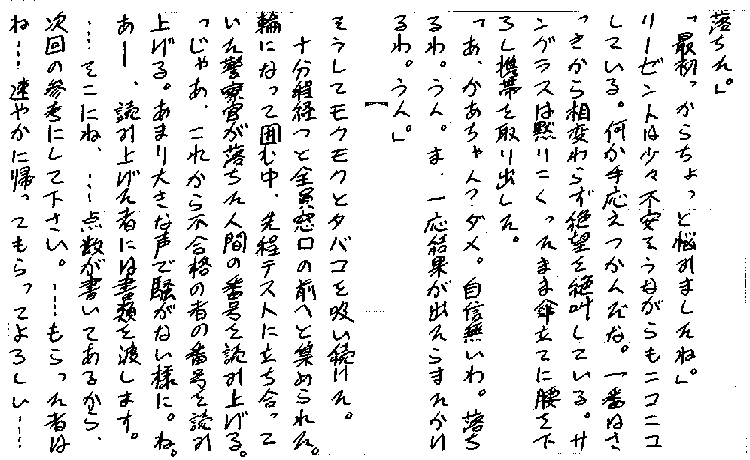 落ちた。」
「最初っからちょっと悩みましたね。」
リーゼントは少々不安そうながらもニコニコ
している。何か手応えつかんだな。一番はさ
っきから相変わらず絶望を絶叫している。サ
ングラスは黙りこくったまま傘立てに腰を下
ろし携帯を取り出した。
「あ、かあちゃん?ダメ。自信無いわ。落ち
るわ。うん。ま、一応結果が出たらまたかけ
るわ。うん。」
そうしてモクモクとタバコを吸い続けた。
十分程経つと全員窓口の前へと集められた。
輪になって囲む中、先程テストに立ち合って
いた警察官が落ちた人間の番号を読み上げる。
「じゃあ、これから不合格の者の番号を読み
上げる。あまり大きな声で騒がない様に。ね。
あー、読み上げた者には書類を渡します。
…そこにね、…点数が書いてあるから、
次回の参考にして下さい。…もらった者は
ね…速やかに帰ってもらってよろしい…